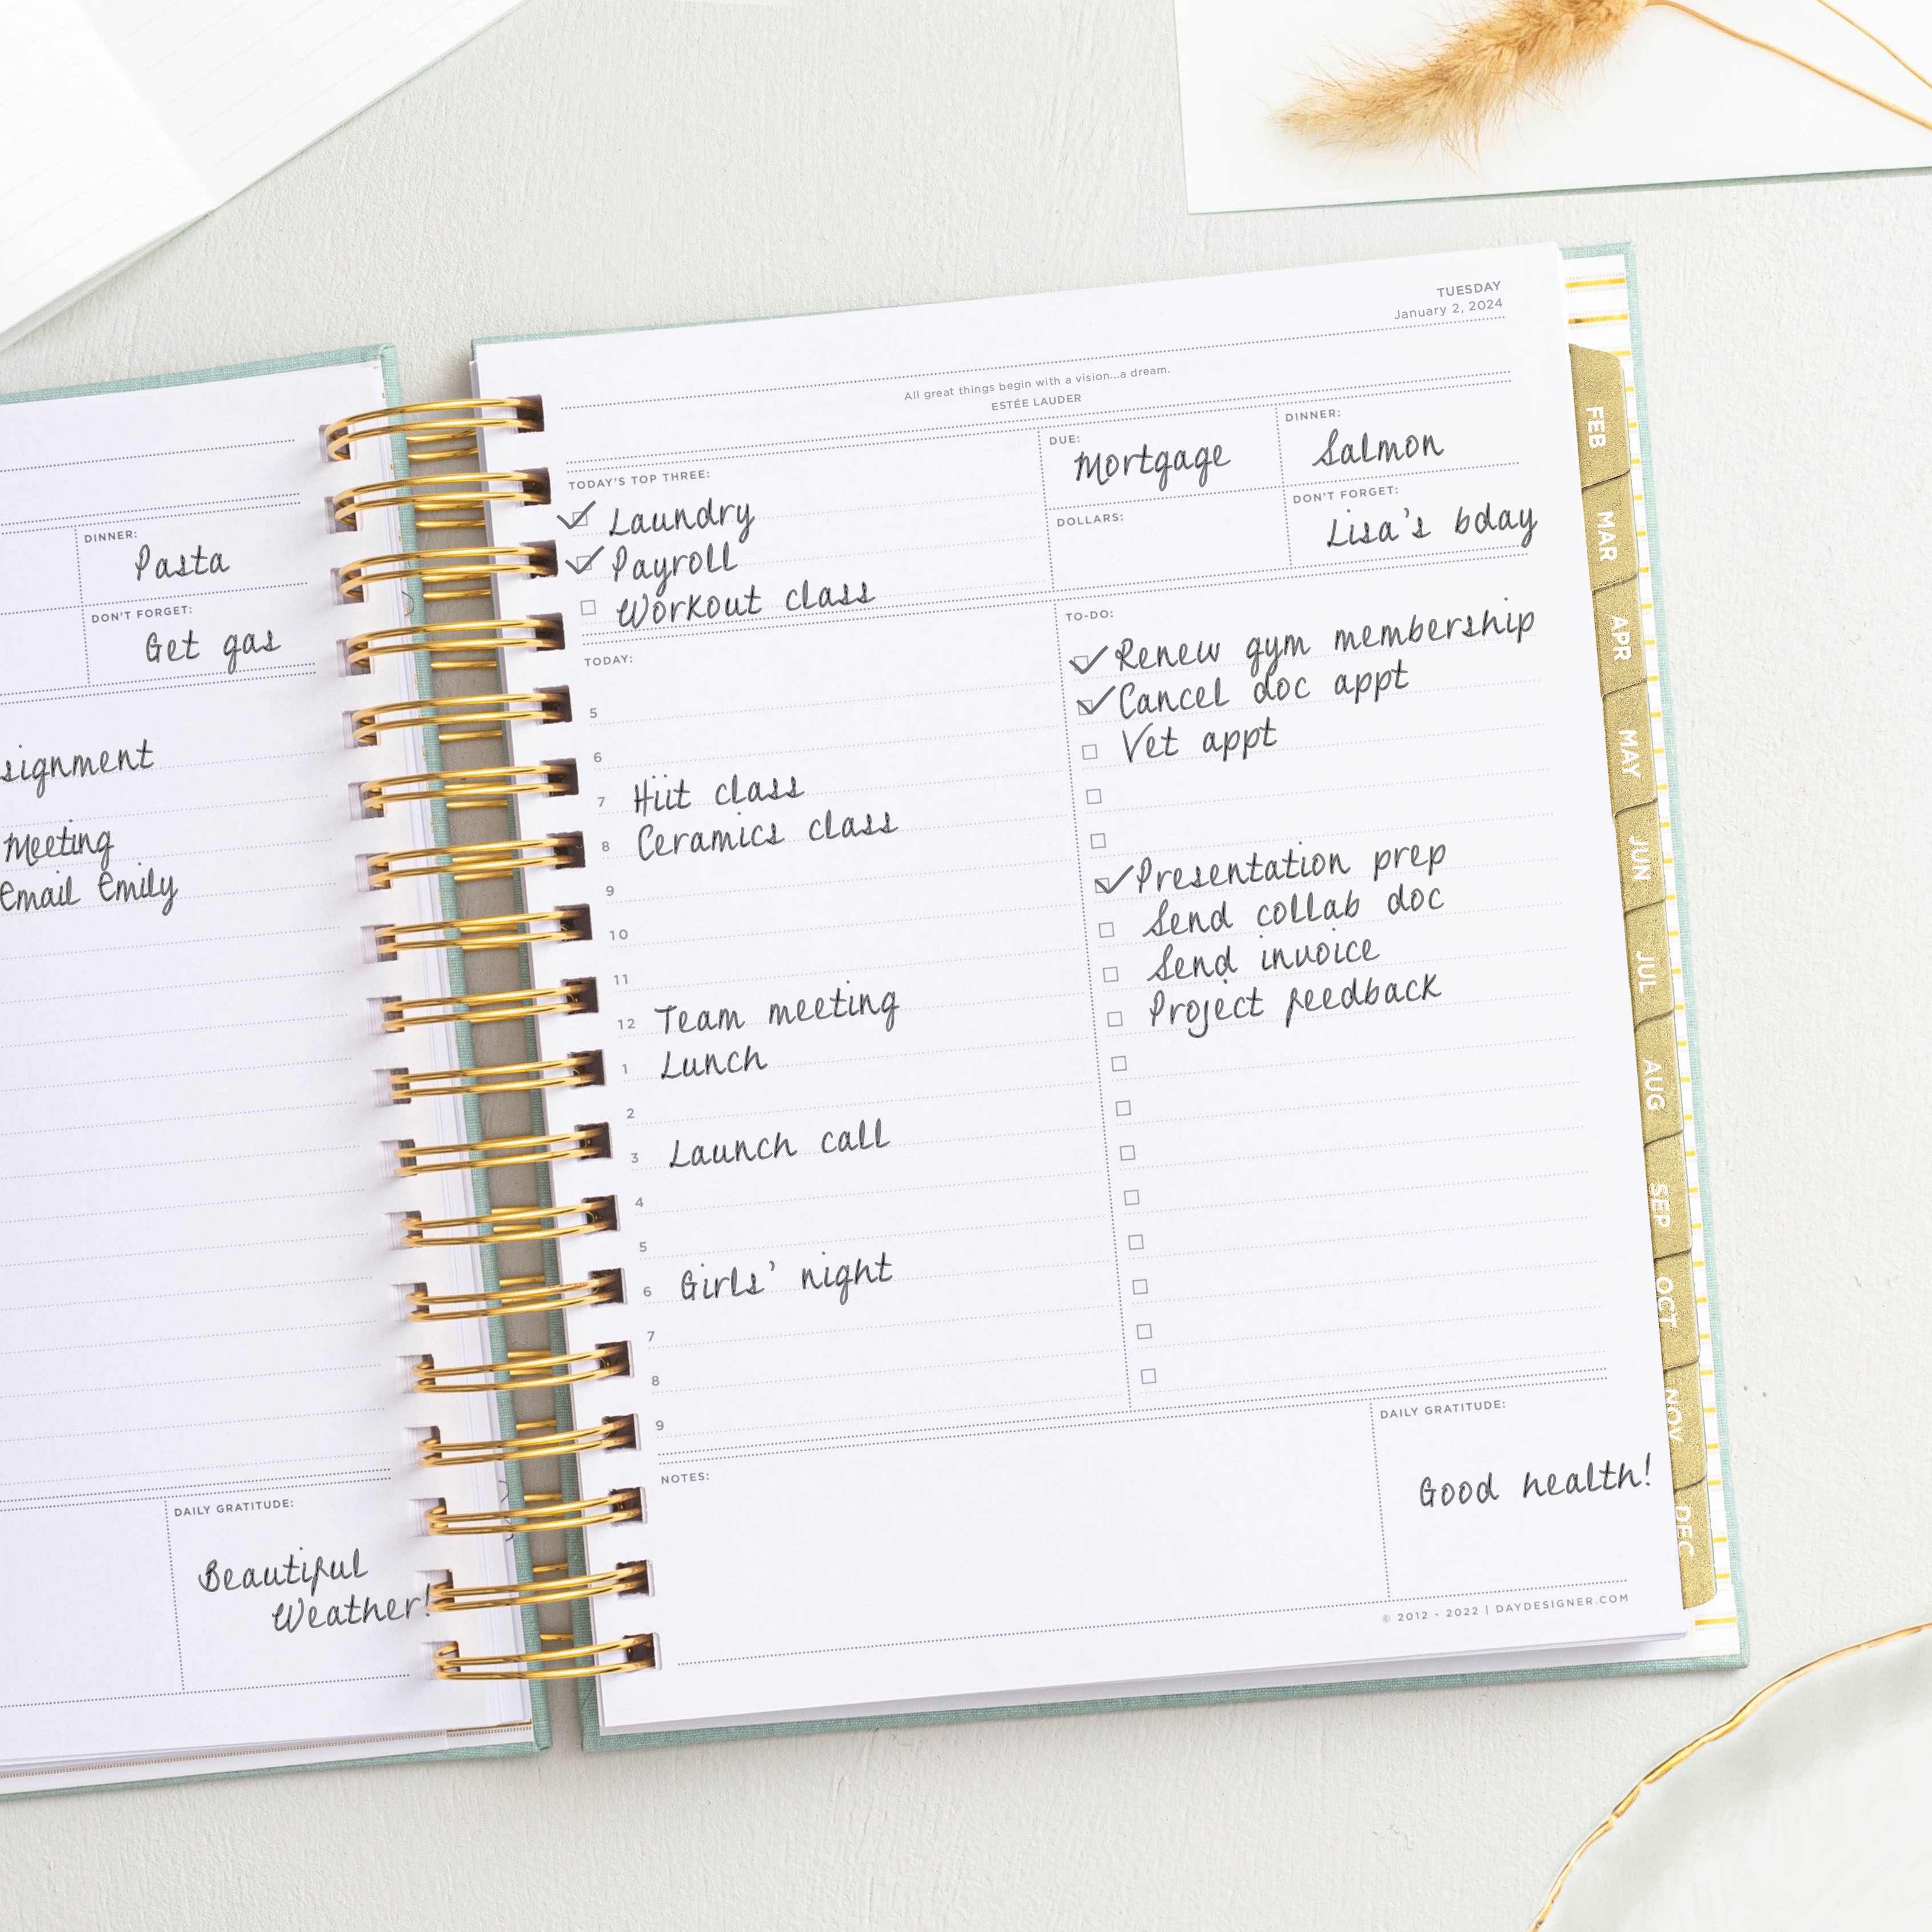 DINNER:
Pasta
DON'T FORGET:
Get gas
Meeting
Email Emily
DAILY GRATITUDE:
Beautiful
Weather!
TUESDAY
January 2, 2024
All great things begin with a vision...a dream.
ESTÉE LAUDER
TODAY'S TOP THREE:
Laundry
Payroll
Workout class
DUE:
Mortgage
DINNER:
Salmon
DOLLARS:
DON'T FORGET:
Lisa's bday
TODAY:
5
6
7 Hiit class
8 Ceramics class
9
10
11
12 Team meeting
1 Lunch
2
3 Launch call
4
5
6 Girls' night
7
8
9
TO-DO:
Renew gym membership
Cancel doc appt
Vet appt
Presentation prep
Send collab doc
Send invoice
Project feedback
NOTES:
DAILY GRATITUDE:
Good health!
© 2012 - 2022 | DAYDESIGNER.COM
FEB
MAR
APR
MAY
JUN
JUL
AUG
SEP
OCT
NOV
DEC